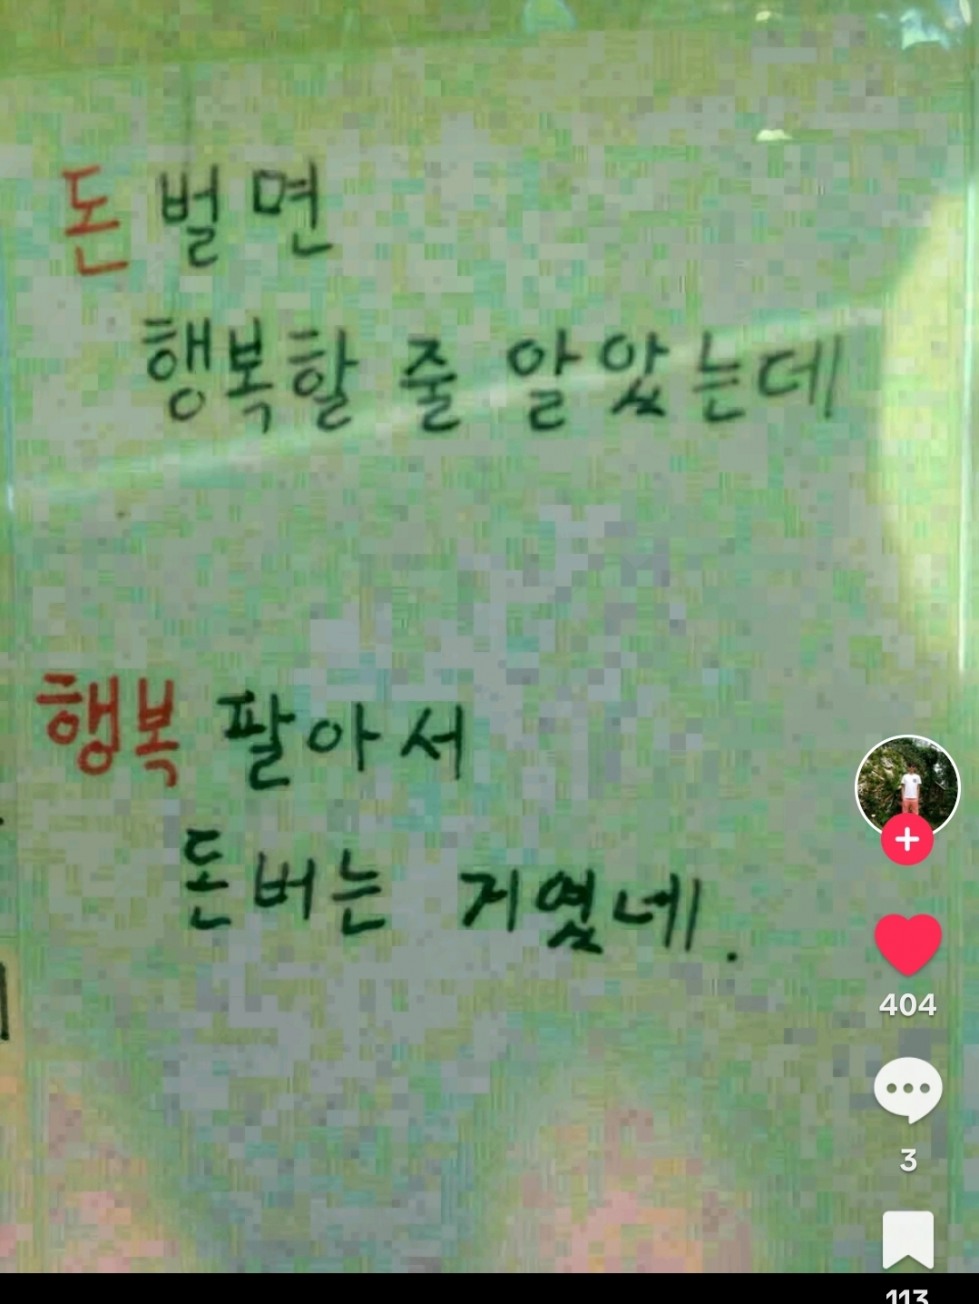 돈 벌면
행복할 줄 알았는데
행복 팔아서
돈버는 거였네.
404
3
113